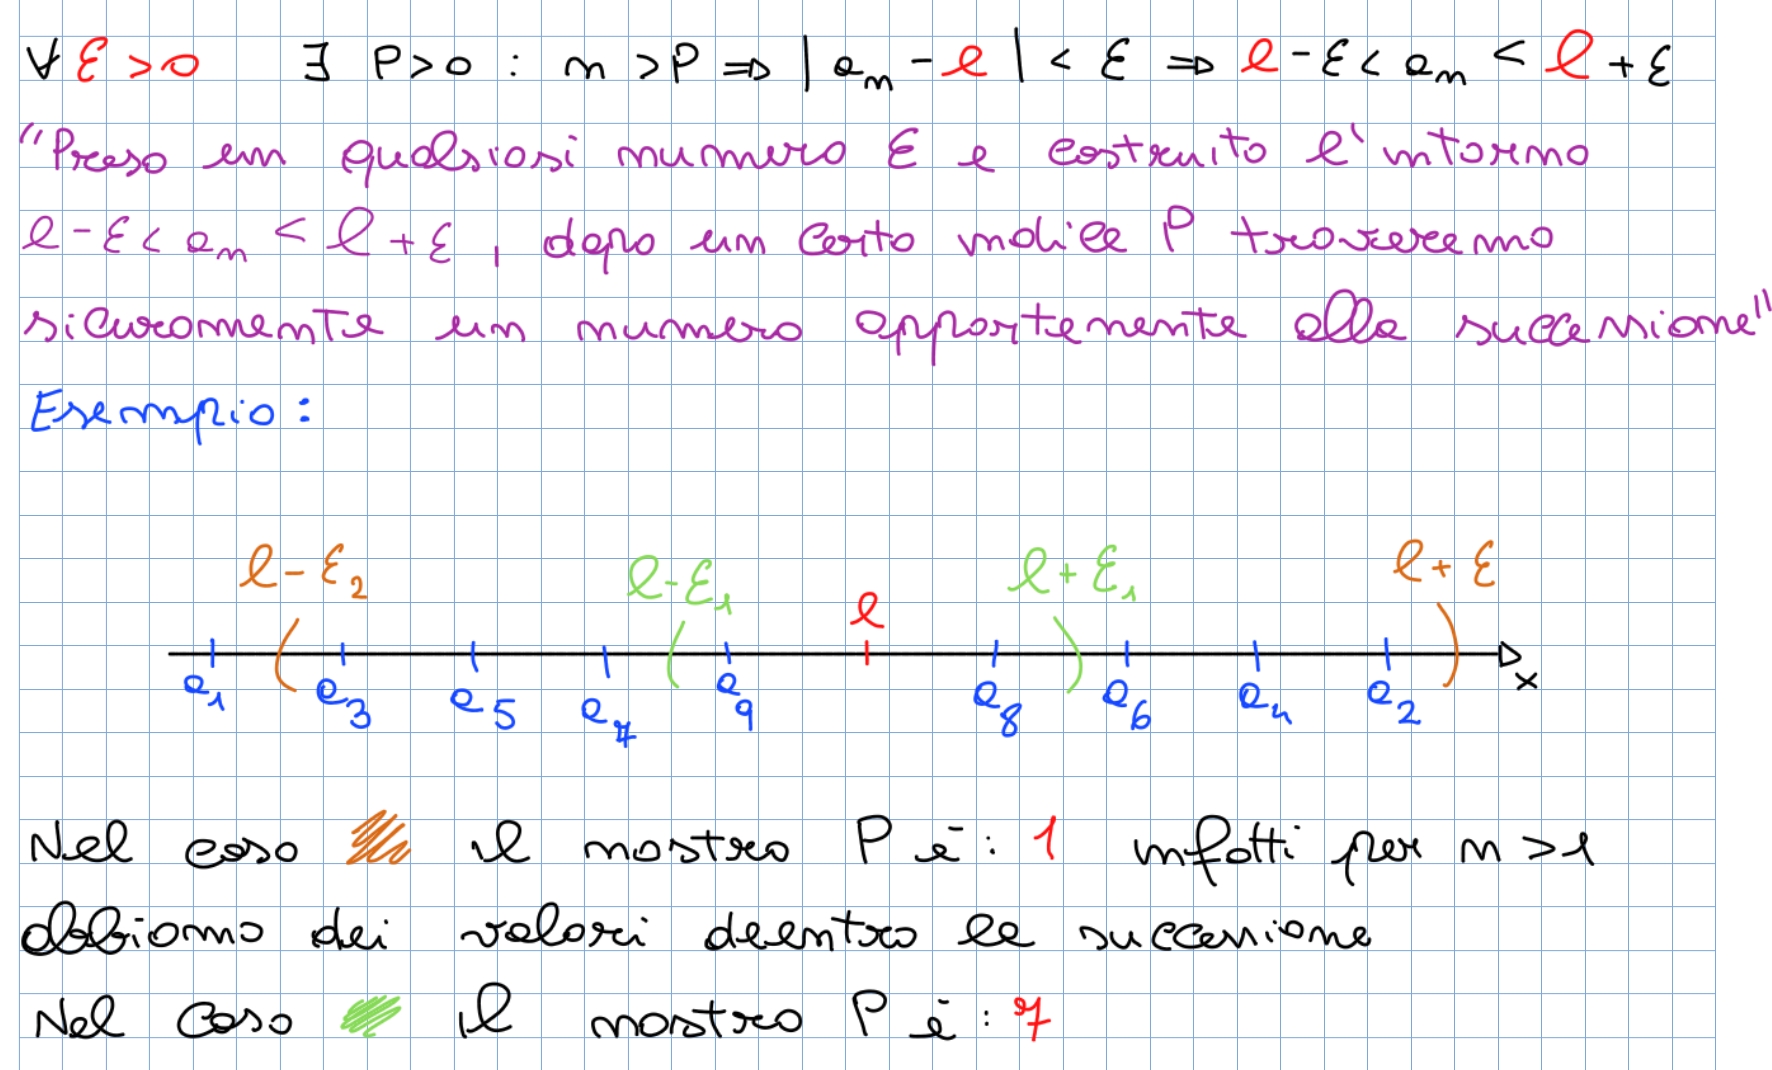 ∀ ε > 0 ∃ P > 0 : n > P ⇒ | aₙ - l | < ε ⇒ l - ε < aₙ < l + ε
"Preso un qualsiasi numero ε e costruito l'intorno
l - ε < aₙ < l + ε, dopo un certo indice P troveremo
sicuramente un numero appartenente alla successione"
Esempio:
l - ε₂ l - ε₁ l l + ε₁ l + ε
a₁ a₃ a₅ a₇ a₉ a₈ a₆ a₄ a₂ x
Nel caso il nostro P è: 1 infatti per n > 1
abbiamo dei valori dentro la successione
Nel caso il nostro P è: 7